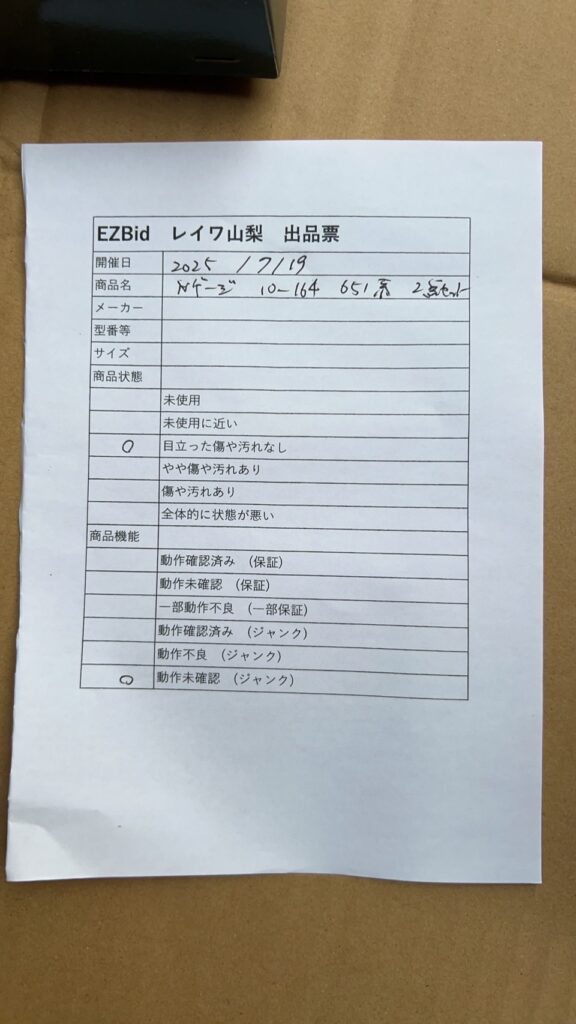 EZBid レイワ山梨 出品票
開催日 2025 / 7 / 19
商品名 Nゲージ 10-164 651系 2点セット
メーカー
型番等
サイズ
商品状態
未使用
未使用に近い
○ 目立った傷や汚れなし
やや傷や汚れあり
傷や汚れあり
全体的に状態が悪い
商品機能
動作確認済み (保証)
動作未確認 (保証)
一部動作不良 (一部保証)
動作確認済み (ジャンク)
動作不良 (ジャンク)
○ 動作未確認 (ジャンク)